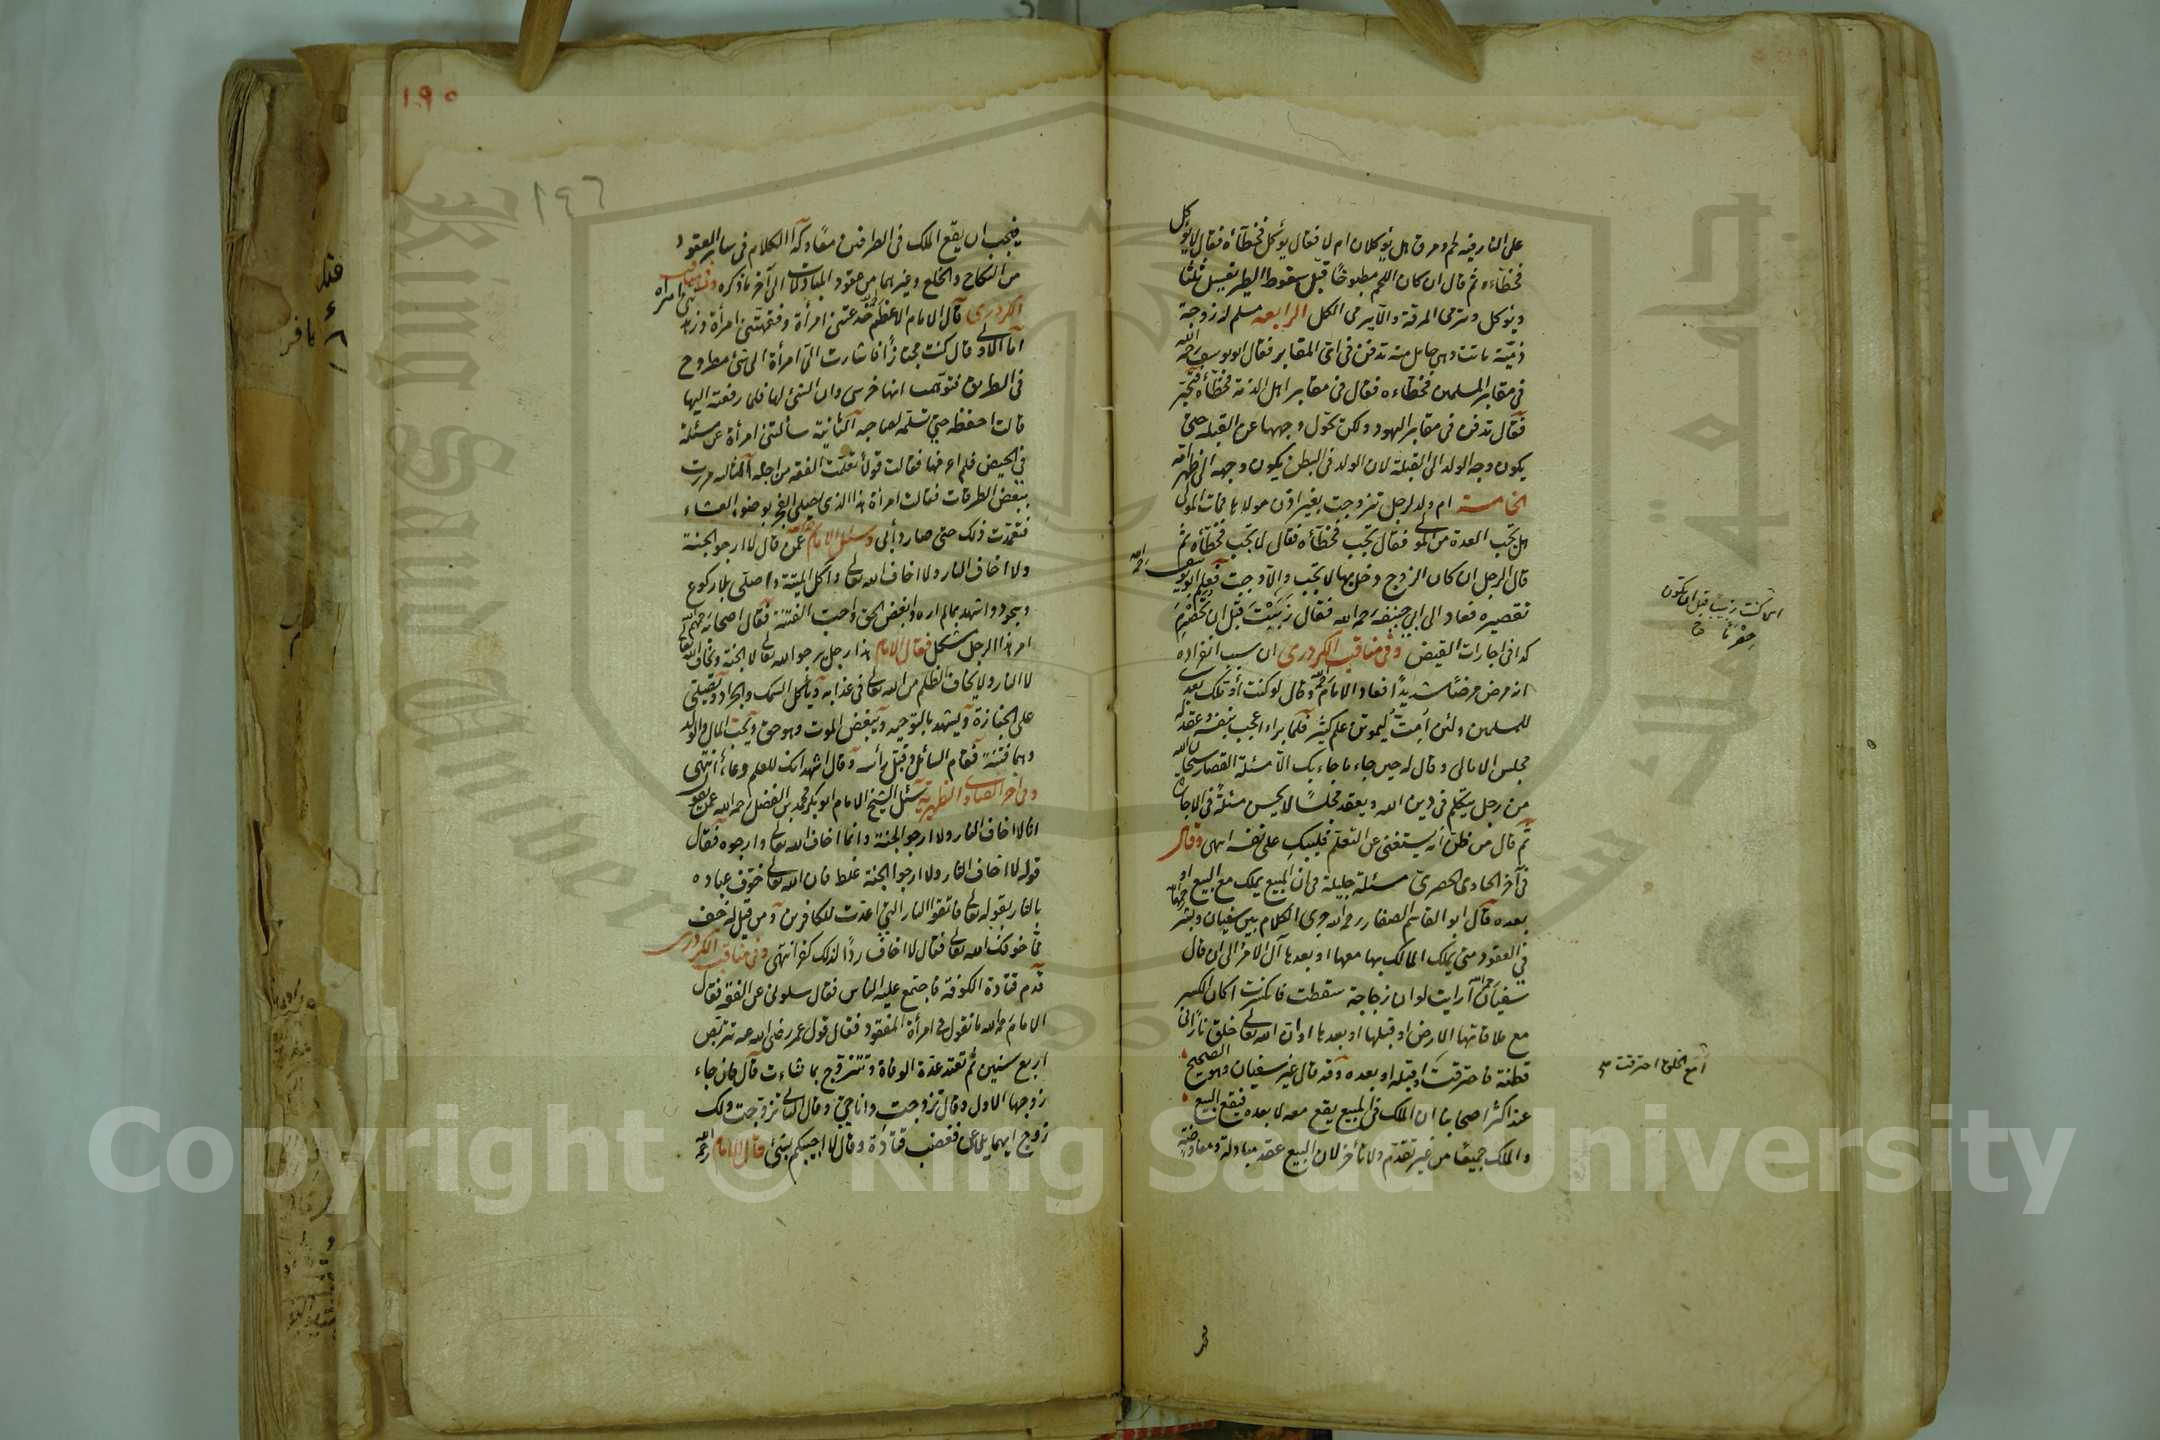 على النار فيه لحم ومرق هل يؤكلان ام لا فقال يؤكل فخطأه فقال لا يؤكل
فخطأه ثم قال ان كان اللحم مطبوخا قبل سقوط الطير يغسل ثلثا
ويؤكل وترمى المرقة والا يرمى الكل الرابعه مسلم له زوجة
ذمية ماتت وهى حامل منه تدفن فى اى المقابر فقال ابو يوسف رحمه الله
فى مقابر المسلمين فخطأه فقال فى مقابر اهل الذمة فخطأه فتحير
فقال تدفن فى مقابر اليهود ولكن يحول وجهها عن القبلة حتى
يكون وجه الولد الى القبلة لان الولد فى البطن يكون وجهه الى ظهر امه
الخامسة ام ولد لرجل تزوجت بغير اذن مولاها فمات المولى
هل تجب العدة من المولى فقال تجب فخطأه فقال لا تجب فخطأه ثم
قال الرجل ان كان الزوج دخل بها لا تجب والا وجبت فعلم ابو يوسف رحمه الله
تقصيره فعاد الى ابى حنيفه رحمه الله فقال زببت قبل ان تحصرم
كذا فى اجارات الفيض وفى مناقب الكردرى ان سبب انفراده
انه مرض مرضا شديدا فعاد الامام وقال لو كنت أؤملك بعدى
للمسلمين ولئن أمت ليموتن علم كثير فلما برأ اعجب بنفسه وعقد له
مجلس الامالى وقال له حين جاء ما جاء بك الا مسئلة القصار سبحان الله
من رجل يتكلم فى دين الله ويعقد مجلسا لا يحسن مسئلة فى الاجارة
ثم قال من ظن انه يستغنى عن التعلم فليبك على نفسه انتهى وقال
فى آخر الحاوى الحصرى مسئلة جليلة فى ان المبيع يملك مع البيع او
بعده قال ابو القاسم الصفار رحمه الله جرى الكلام بين سفيان وبشر
فى العقود متى يملك المالك بها معها او بعدها آل الامر الى ان قال
سفيان أرايت لو ان زجاجة سقطت فانكسرت اكان الكسر
مع ملاقاتها الارض او قبلها او بعدها او ان الله تعالى خلق نارا فى
قطنة فاحترقت او قبله او بعده وقد قال غير سفيان وهو الصحيح
عند اكثر اصحابنا ان الملك فى المبيع يقع معه لا بعده فيقع البيع
والملك جميعا من غير تقدم ولا تأخر لان البيع عقد مبادلة ومعاوضة
اى كنت زبيبا قبل ان تكون
حصرما
أمع الخلق احترقت
١٩٥
١٩٦
فيجب ان يقع الملك فى الطرفين معا وكذا الكلام فى سائر العقود
من النكاح والخلع وغيرهما من عقود المبادلات الى آخر ما ذكره وفى مناقب
الكردرى قال الامام الاعظم خدعتنى امرأة وفقهتنى امرأة وزهدتنى امراة
اما الاولى قال كنت مجتازا فاشارت الى امرأة الى شئ مطروح
فى الطريق فتوهمت انها خرسى وان الشئ لها فلما رفعته اليها
قالت احفظه حتى تسلمه لصاحبه الثانية سألتنى امرأة عن مسئلة
فى الحيض فلم اعرفها فقالت قولا تعلمت الفقه من اجله الثالثه مررت
ببعض الطرقات فقالت امرأة هذا الذى يصلى الفجر بوضوء العشاء
فتعمدت ذلك حتى صار دأبى وسئل الامام عمن قال لا ارجو الجنة
ولا اخاف النار ولا اخاف الله تعالى وآكل الميتة واصلى بلا ركوع
وسجود واشهد بما لم اره وابغض الحق واحب الفتنة فقال اصحابه
امر هذا الرجل مشكل فقال الامام هذا رجل يرجو الله تعالى لا الجنة ويخاف الله تعالى
لا النار ولا يخاف الظلم من الله تعالى فى عذابه ويأكل السمك والجراد ويصلى
على الجنازة ويشهد بالتوحيد ويبغض الموت وهو حق ويحب المال والولد
وهما فتنة فقام السائل وقبل رأسه وقال اشهد انك للعلم وعاء انتهى
وفى آخر الفتاوى الظهيرية سئل الشيخ الامام ابو بكر محمد بن الفضل رحمه الله عمن يقول
انا لا اخاف النار ولا ارجو الجنة وانما اخاف الله تعالى وارجوه فقال
قوله لا اخاف النار ولا ارجو الجنة غلط فان الله تعالى خوف عباده
بالنار بقوله تعالى فاتقوا النار التى اعدت للكافرين ومن قيل له خف
مما خوفك الله تعالى فقال لا اخاف ردا لذلك كفر انتهى وفى مناقب الكردرى
قدم قتادة الكوفة فاجتمع عليه الناس فقال سلونى عن الفقه فقال
الامام رحمه الله ما تقول فى امرأة المفقود فقال قول عمر رضى الله عنه تتربص
اربع سنين ثم تعتد عدة الوفاة وتتزوج بما شاءت قال فان جاء
زوجها الاول وقال تزوجت وانا حى وقال الثانى تزوجت ولك
زوج ايهما يلاعن فغضب قتادة وقال لا اجيبكم بشئ قال الامام رحمه الله
Copyright © King Saud University
King Saud University
1957